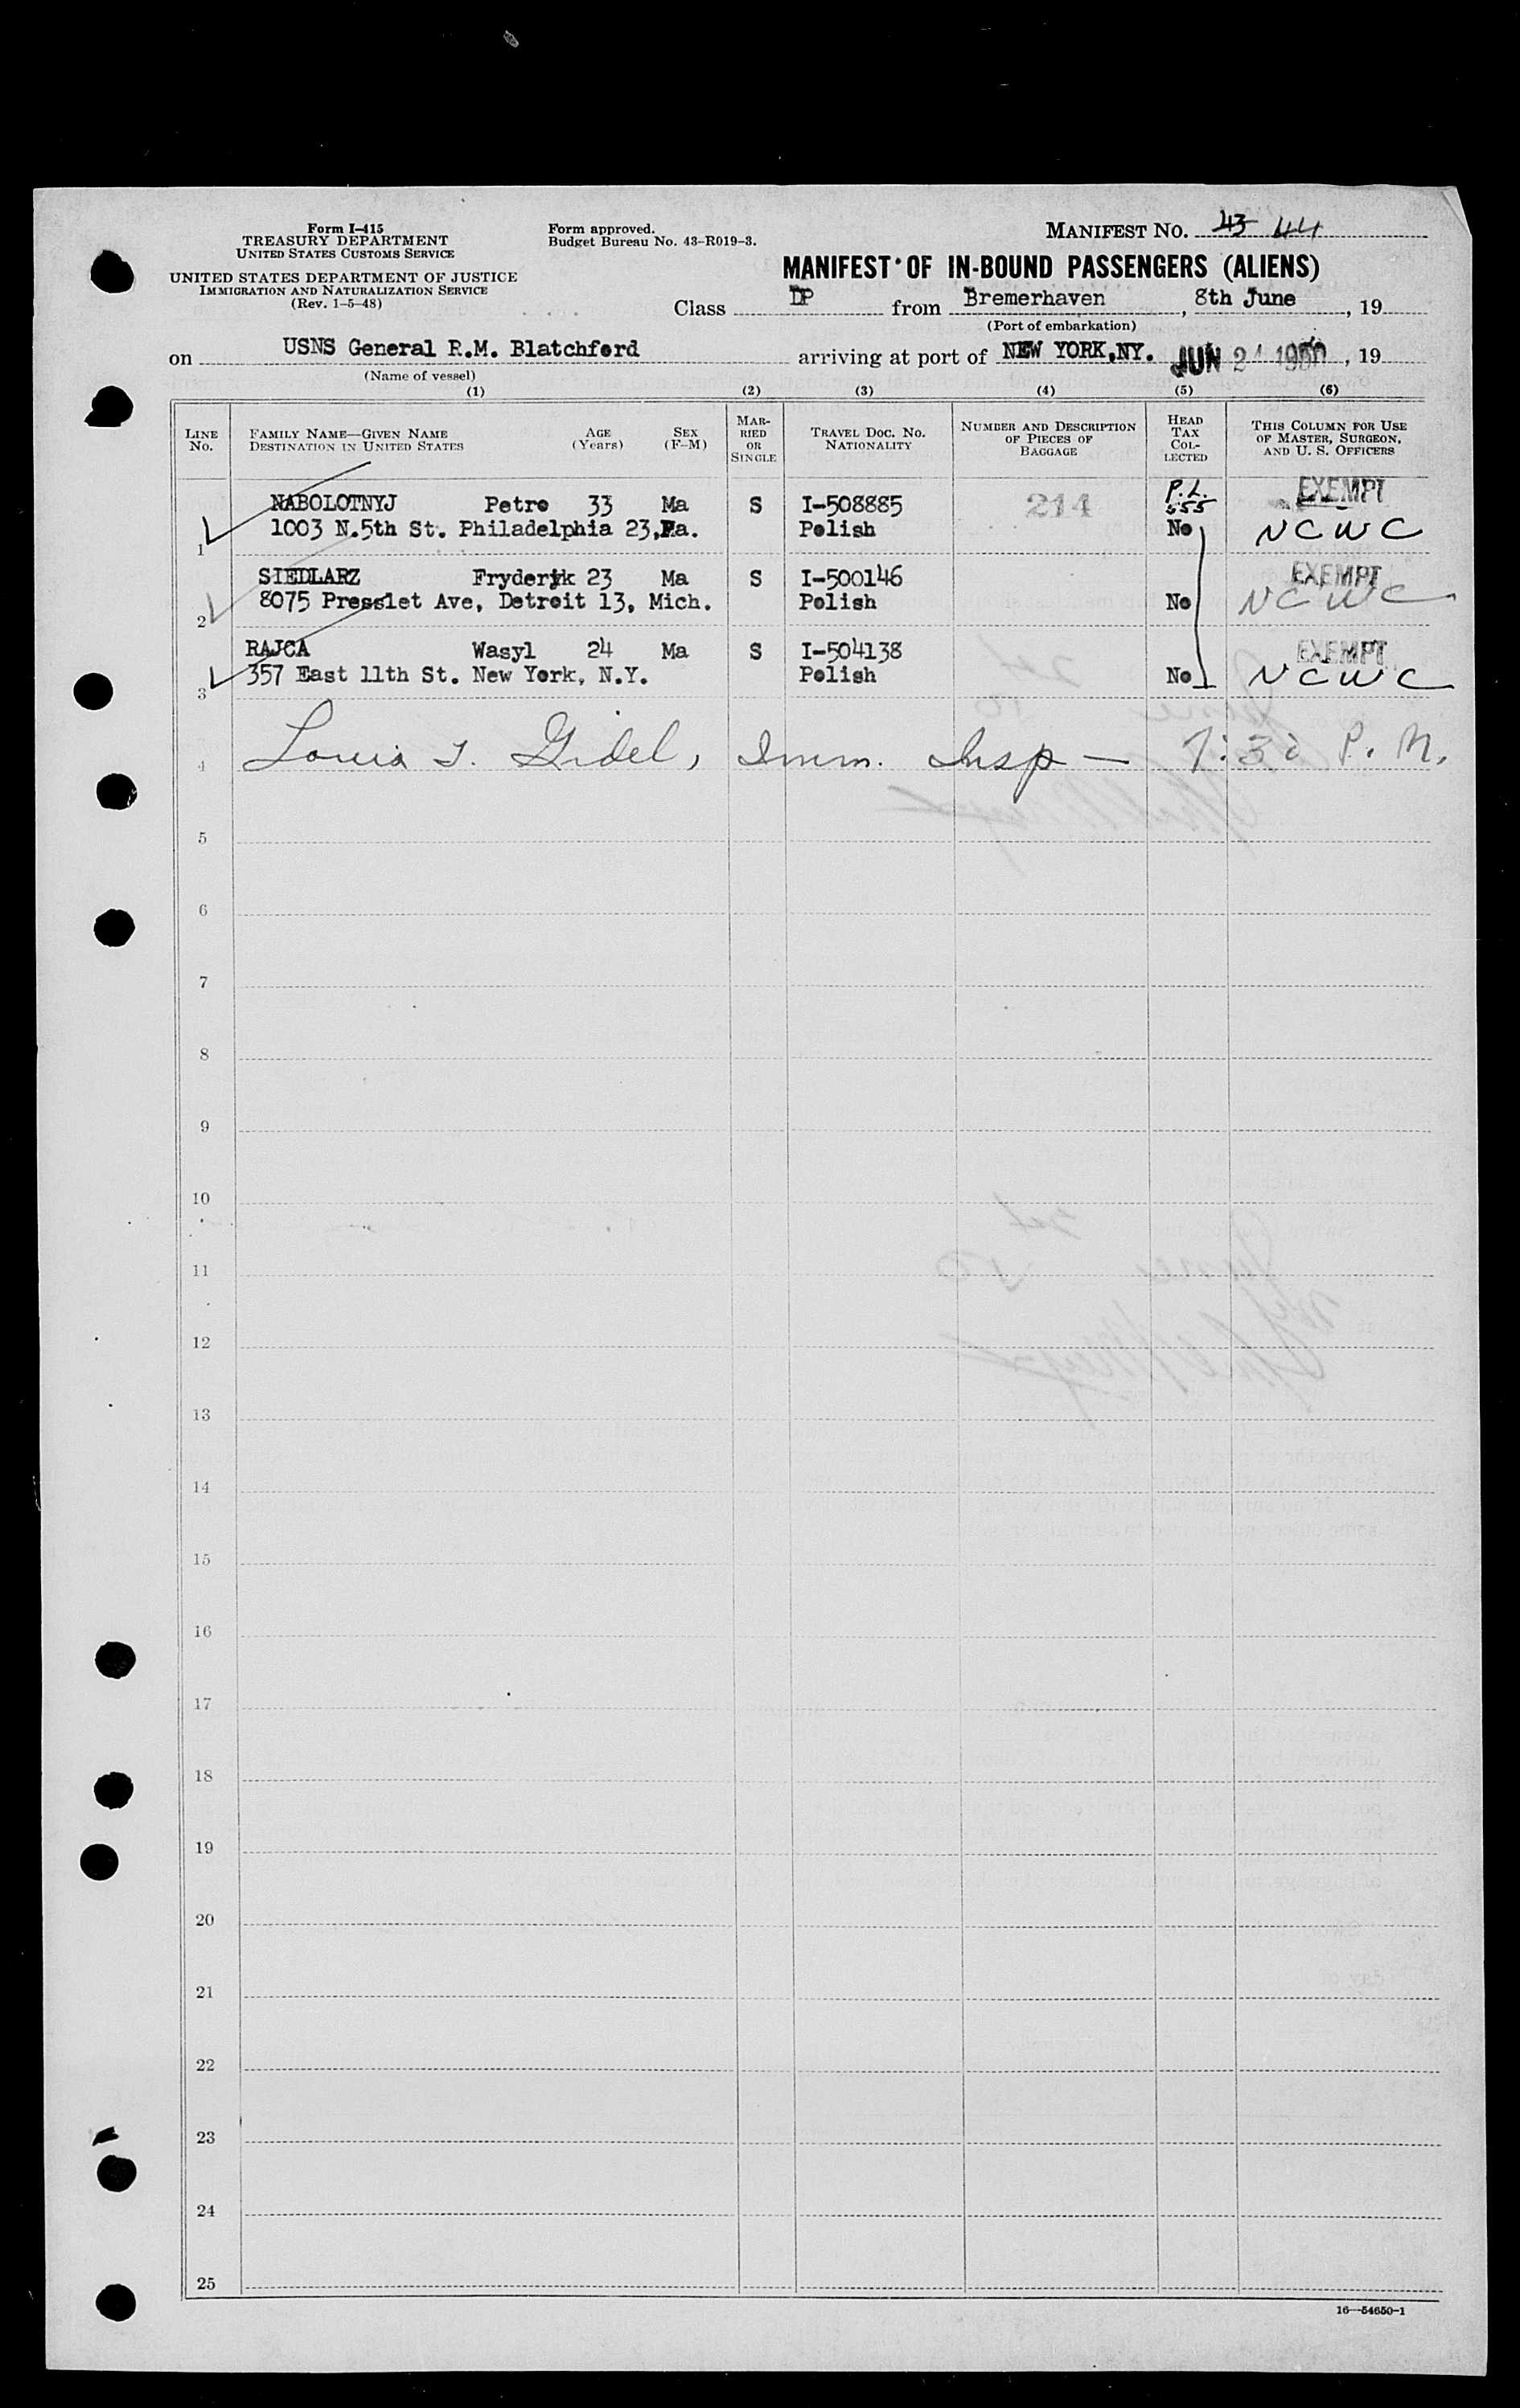 Form I-415
TREASURY DEPARTMENT
UNITED STATES CUSTOMS SERVICE
UNITED STATES DEPARTMENT OF JUSTICE
IMMIGRATION AND NATURALIZATION SERVICE
(Rev. 1-5-48)
Form approved.
Budget Bureau No. 43-R019-3.
MANIFEST NO. 43 44
MANIFEST OF IN-BOUND PASSENGERS (ALIENS)
Class DP from Bremerhaven, 8th June, 19
(Port of embarkation)
on USNS General R.M. Blatchford arriving at port of NEW YORK,NY. JUN 24 1950, 19
(Name of vessel)
(1) (2) (3) (4) (5) (6)
LINE NO.
FAMILY NAME—GIVEN NAME
DESTINATION IN UNITED STATES
AGE (Years)
SEX (F-M)
MARRIED OR SINGLE
TRAVEL DOC. NO.
NATIONALITY
NUMBER AND DESCRIPTION OF PIECES OF BAGGAGE
HEAD TAX COLLECTED
THIS COLUMN FOR USE OF MASTER, SURGEON, AND U. S. OFFICERS
NABOLOTNYJ Petro 33 Ma S I-508885 214 P.L. 555 EXEMPT
1 1003 N.5th St. Philadelphia 23,Pa. Polish No NCWC
SIEDLARZ Fryderyk 23 Ma S I-500146 EXEMPT
2 8075 Presslet Ave, Detroit 13, Mich. Polish No NCWC
RAJCA Wasyl 24 Ma S I-504138 EXEMPT
3 357 East 11th St. New York, N.Y. Polish No NCWC
4 Louis J. Gidel, Imm. Insp — 7:30 P.M.
5
6
7
8
9
10
11
12
13
14
15
16
17
18
19
20
21
22
23
24
25
16—54650-1